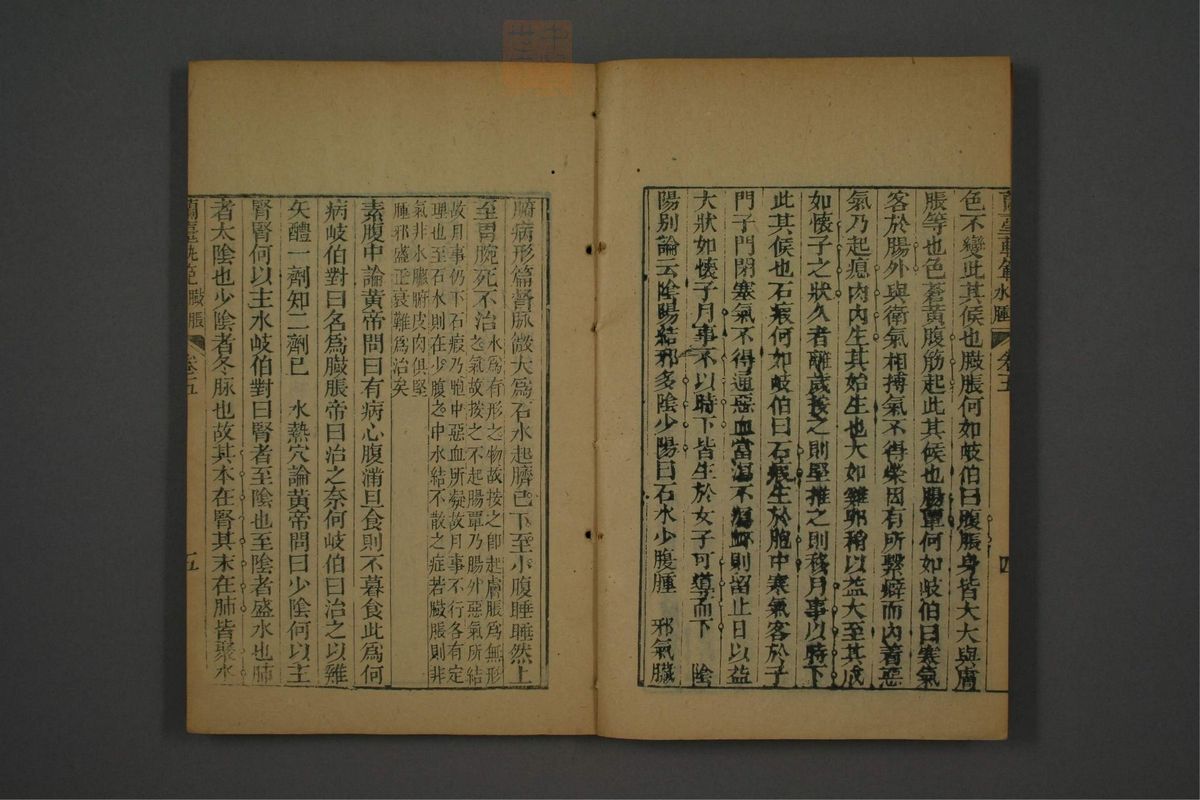 蘭臺軌範 水腫 卷五 四
色不變此其候也臌脹何如岐伯曰腹脹身皆大大與膚
脹等也色蒼黃腹筋起此其候也腸覃何如岐伯曰寒氣
客於腸外與衛氣相搏氣不得榮因有所繫癖而內著惡
氣乃起瘜肉內生其始生也大如雞卵稍以益大至其成
如懷子之狀久者離歲按之則堅推之則移月事以時下
此其候也石瘕何如岐伯曰石瘕生於胞中寒氣客於子
門子門閉塞氣不得通惡血當瀉不瀉衃則留止日以益
大狀如懷子月事不以時下皆生於女子可導而下 陰
陽別論云陰陽結邪多陰少陽曰石水少腹腫 邪氣臟
腑病形篇腎脉微大爲石水起臍已下至小腹腄腄然上
至胃脘死不治水爲有形之物故按之卽起膚脹爲無形
之氣故按之不起腸覃乃腸外惡氣所結
故月事仍下石瘕乃胞中惡血所凝故月事不行各有定
理也至石水則在少腹之中水結不散之症若臌脹則非
氣非水臟腑皮肉俱堅
腫邪盛正衰難爲治矣
素腹中論黃帝問曰有病心腹滿旦食則不暮食此爲何
病岐伯對曰名爲臌脹帝曰治之奈何岐伯曰治之以雞
矢醴一劑知二劑已 水熱穴論黃帝問曰少陰何以主
腎腎何以主水岐伯對曰腎者至陰也至陰者盛水也肺
者太陰也少陰者冬脉也故其本在腎其末在肺皆聚水
蘭臺軌範 臌脹 卷五 五